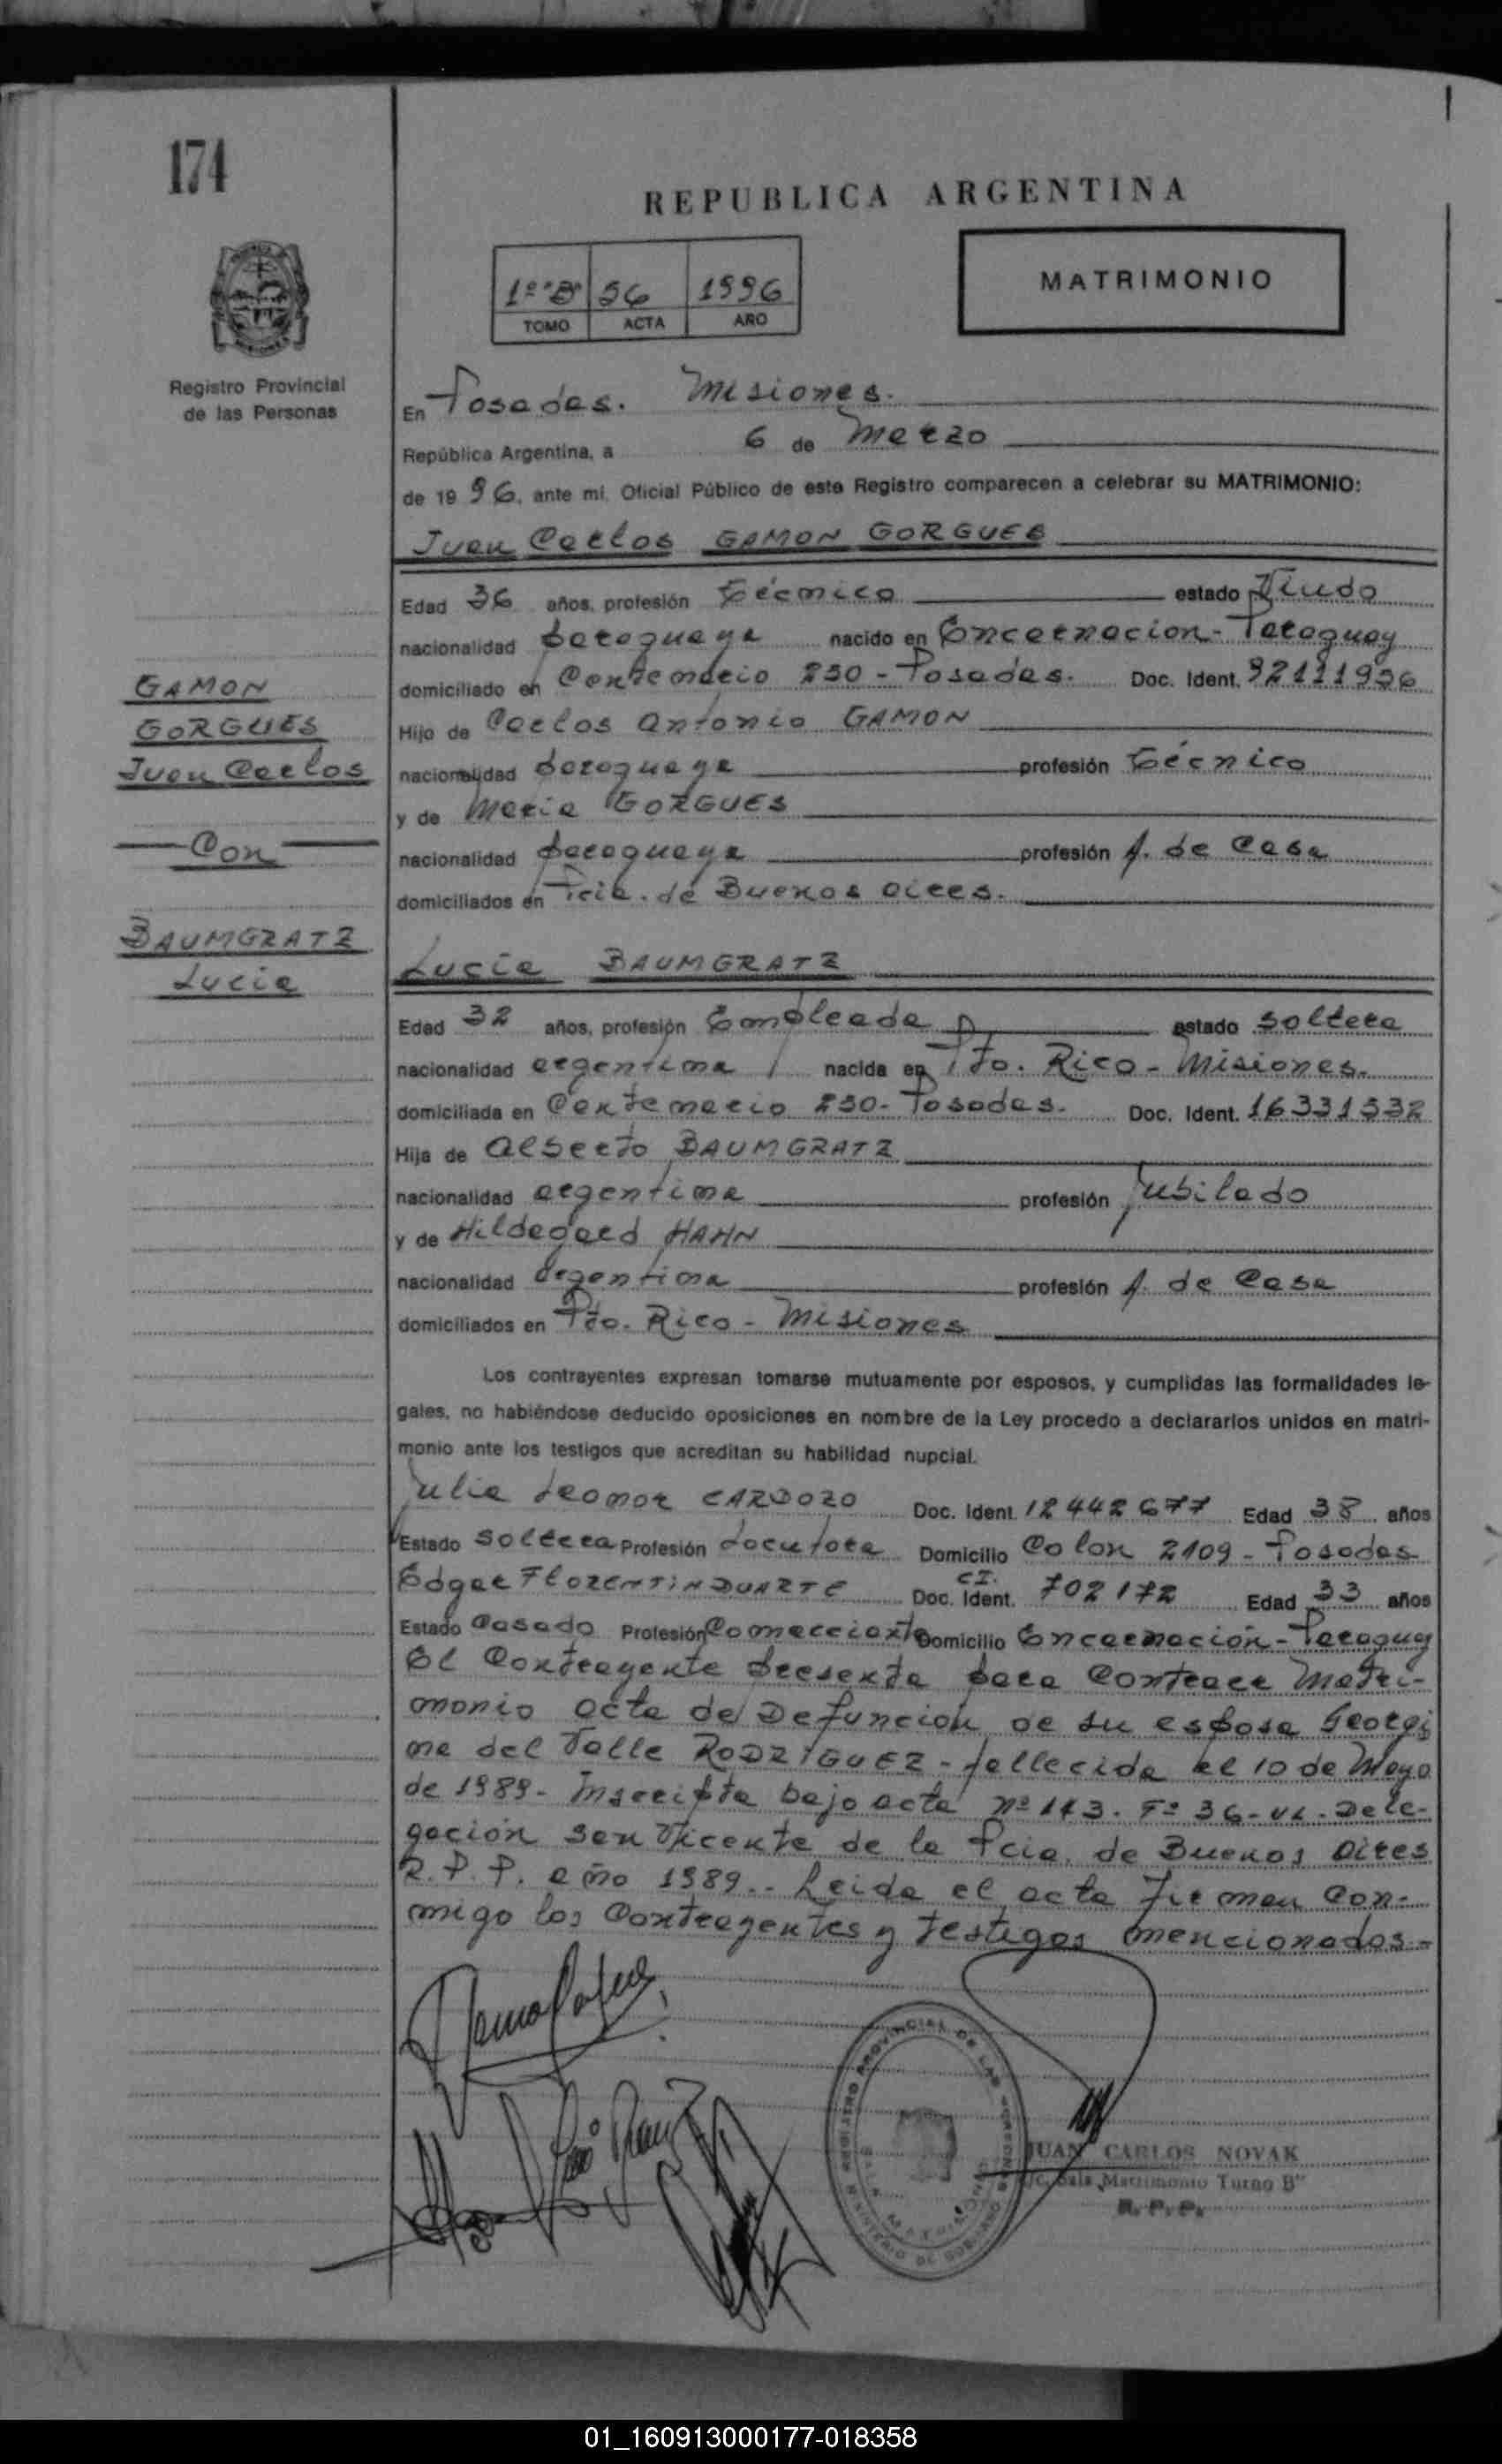 174
REPUBLICA ARGENTINA
1º "B" 56 1996
TOMO ACTA AÑO
MATRIMONIO
Registro Provincial
de las Personas
En Posadas. Misiones.
República Argentina, a 6 de Marzo
de 1996, ante mí, Oficial Público de este Registro comparecen a celebrar su MATRIMONIO:
Juan Carlos GAMON GORGUES
Edad 36 años, profesión técnico estado Viudo
nacionalidad paraguaya nacido en Encarnacion - Paraguay
domiciliado en Centenario 250 - Posadas. Doc. Ident. 92111956
Hijo de Carlos Antonio GAMON
nacionalidad paraguaya profesión técnico
y de Maria GORGUES
nacionalidad paraguaya profesión A. de Casa
domiciliados en Pcia. de Buenos Aires.
GAMON
GORGUES
Juan Carlos
Con
BAUMGRATZ
Lucia
Lucia BAUMGRATZ
Edad 32 años, profesión Empleada estado soltera
nacionalidad argentina nacida en Pto. Rico - Misiones.
domiciliada en Centenario 250 - Posadas. Doc. Ident. 16331532
Hija de Alberto BAUMGRATZ
nacionalidad argentina profesión Jubilado
y de Hildegard HAHN
nacionalidad argentina profesión A. de Casa
domiciliados en Pto. Rico - Misiones
Los contrayentes expresan tomarse mutuamente por esposos, y cumplidas las formalidades le-
gales, no habiéndose deducido oposiciones en nombre de la Ley procedo a declararlos unidos en matri-
monio ante los testigos que acreditan su habilidad nupcial.
Julia Leonor CARDOZO Doc. Ident. 12442677 Edad 38 años
Estado Soltera Profesión Locutora Domicilio Colon 2109 - Posadas
Edgar FLORENTIN DUARTE Doc. Ident. C.I. 702172 Edad 33 años
Estado Casado Profesión Comerciante Domicilio Encarnación - Paraguay
El Contrayente presenta para Contraer Matri-
monio acta de Defuncion de su esposa Georgi
na del Valle RODRIGUEZ - fallecida el 10 de Mayo
de 1989 - Inscripta bajo acta nº 143. Fº 36-vt. Dele-
gación San Vicente de la Pcia. de Buenos Aires
R.P.P. año 1989.. Leida el acta firman Con-
migo los Contrayentes y testigos mencionados -
REGISTRO PROVINCIAL DE LAS PERSONAS
MINISTERIO DE GOBIERNO
SALA MATRIMONIO
JUAN CARLOS NOVAK
Sala Matrimonio Turno B"
R. P. P.
01_160913000177-018358